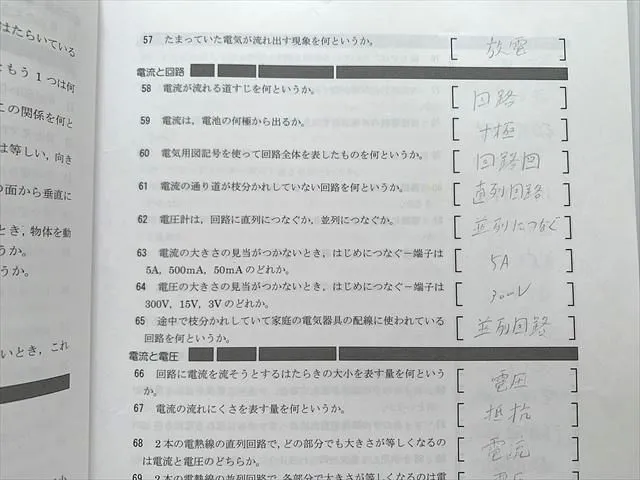 はたらいている
57 たまっていた電気が流れ出す現象を何というか。 [ 放電 ]
ともう1つは何
電流と回路
58 電流が流れる道すじを何というか。 [ 回路 ]
この関係を何と
59 電流は，電池の何極から出るか。 [ +極 ]
は等しい，向き
60 電気用図記号を使って回路全体を表したものを何というか。 [ 回路図 ]
の面から垂直に
61 電流の通り道が枝分かれしていない回路を何というか。 [ 直列回路 ]
62 電圧計は，回路に直列につなぐか，並列につなぐか。 [ 並列につなぐ ]
とき，物体を動
うか。
63 電流の大きさの見当がつかないとき，はじめにつなぐ－端子は
5A，500mA，50mAのどれか。 [ 5A ]
うか。
64 電圧の大きさの見当がつかないとき，はじめにつなぐ－端子は
300V，15V，3Vのどれか。 [ 300V ]
65 途中で枝分かれしていて家庭の電気器具の配線に使われている
回路を何というか。 [ 並列回路 ]
ないとき，これ
電流と電圧
66 回路に電流を流そうとするはたらきの大小を表す量を何という
か。 [ 電圧 ]
67 電流の流れにくさを表す量を何というか。 [ 抵抗 ]
68 2本の電熱線の直列回路で，どの部分でも大きさが等しくなるの
は電流と電圧のどちらか。 [ 電流 ]
69 2本の電熱線の並列回路で，各部分で大きさが等しくなるのは電